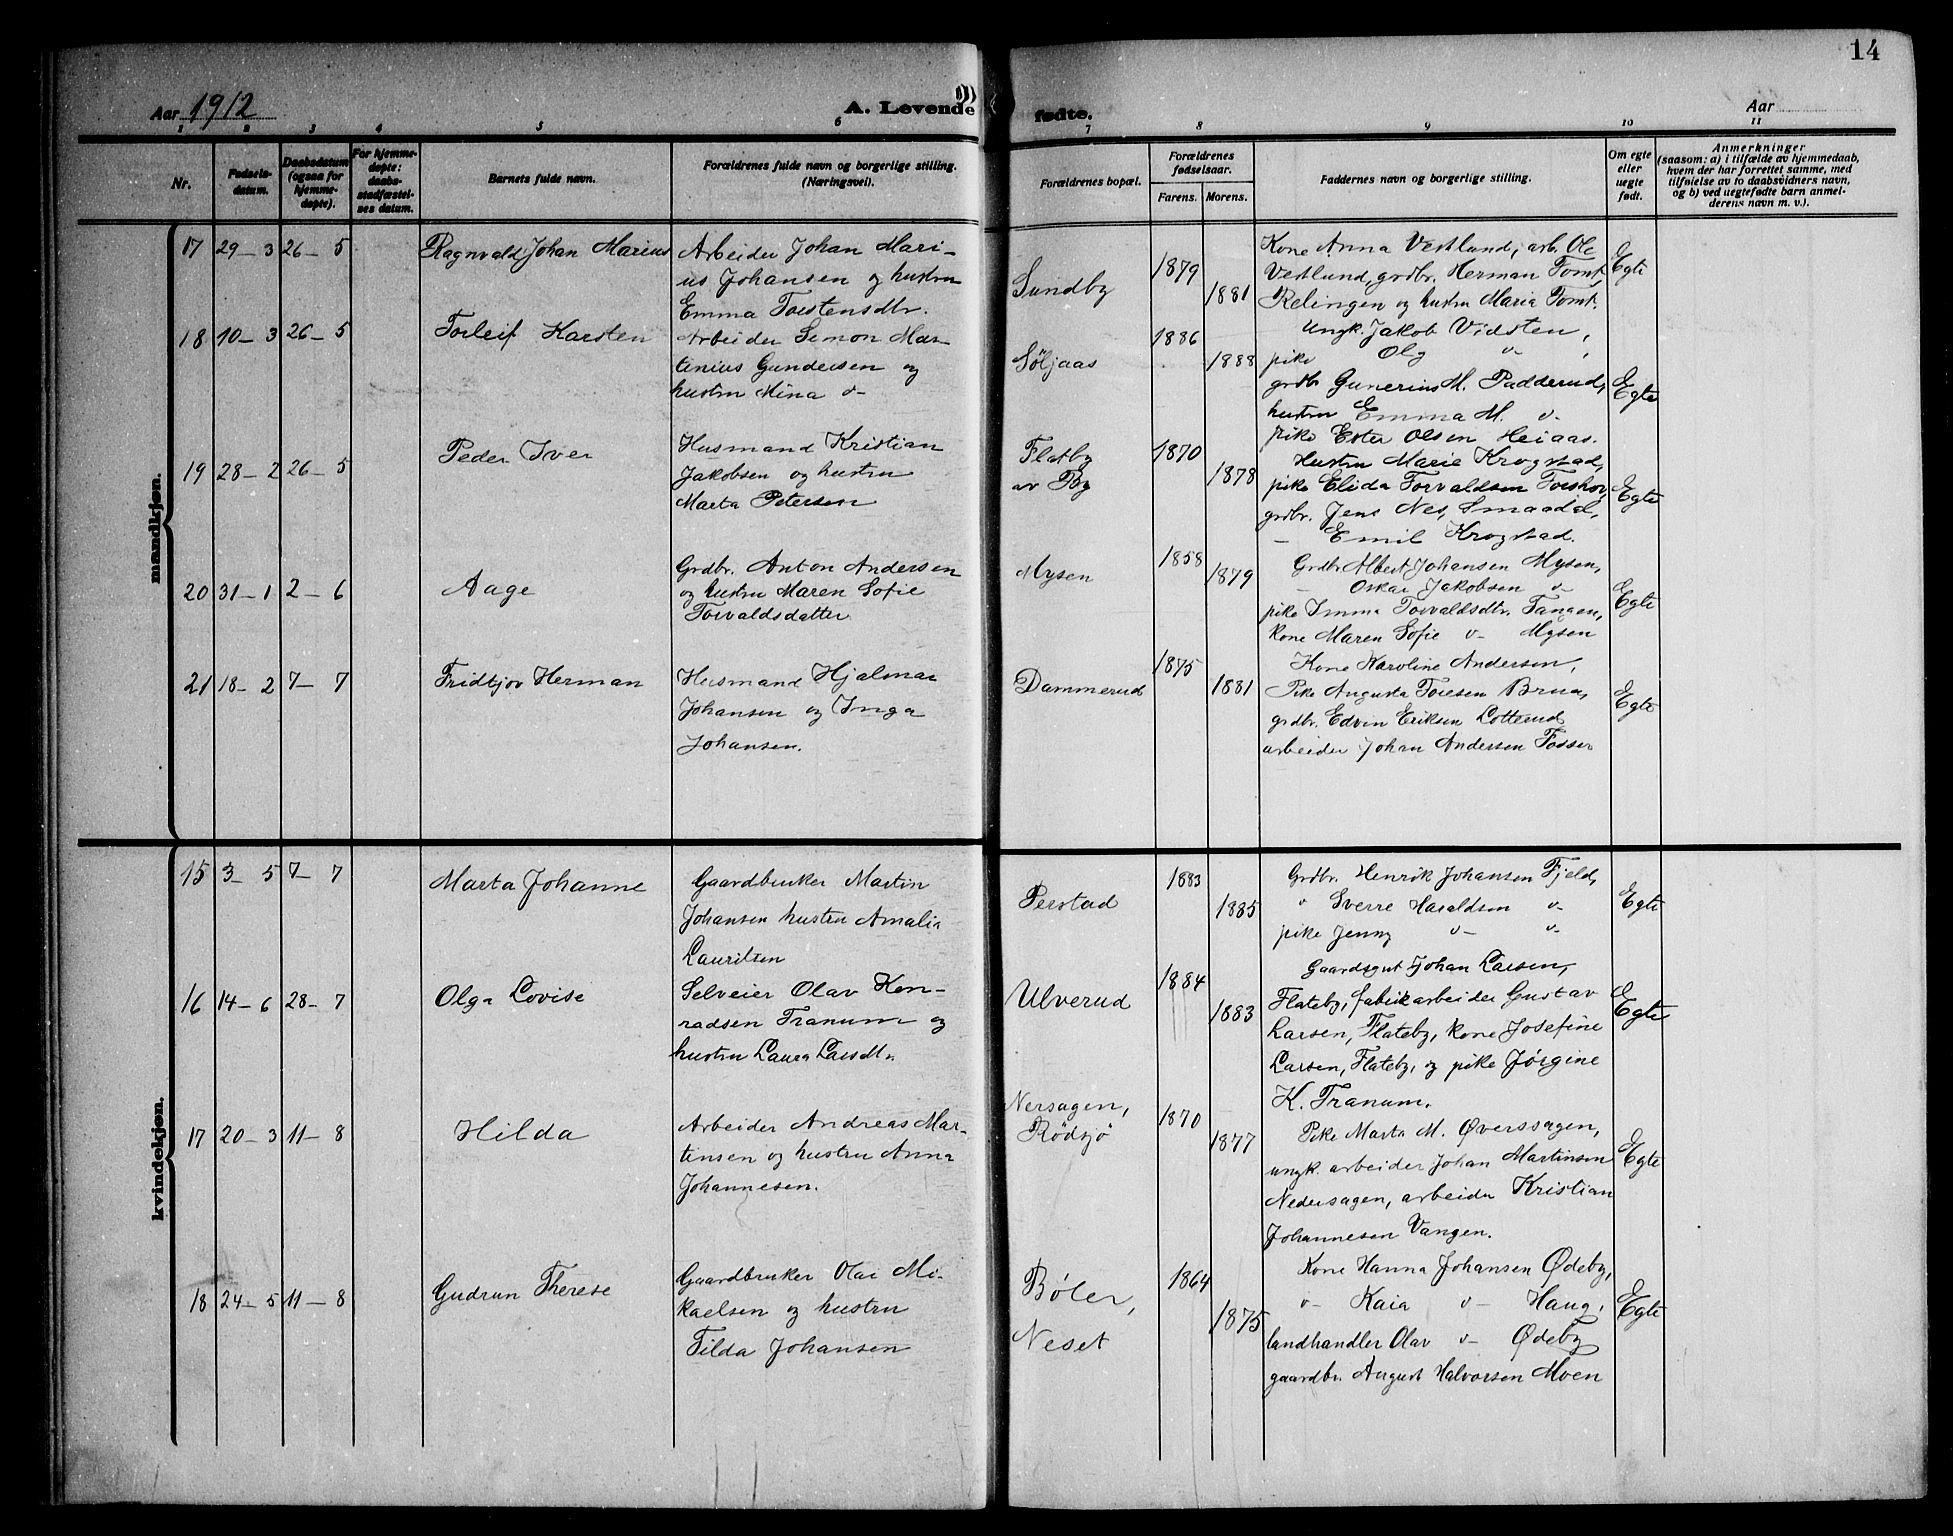 14
Aar 1912
A. Levende
fødte.
Aar
1 2 3 4 5 6 7 8 9 10 11
Nr.
Fødsels-
datum.
Daabsdatum
(ogsaa for
hjemme-
døpte).
For hjemme-
døpte:
daabs-
stadfæstel-
ses datum.
Barnets fulde navn.
Forældrenes fulde navn og borgerlige stilling.
(Næringsvei).
Forældrenes bopæl.
Forældrenes
fødselsaar.
Farens. Morens.
Faddernes navn og borgerlige stilling.
Om egte
eller
uegte
født.
Anmerkninger
(saasom: a) i tilfælde av hjemmedaab,
hvem der har forrettet samme, med
tilføielse av to daabsvidners navn,
og b) ved uegtefødte barn anmel-
derens navn m. v.).
mandkjøn.
17 29-3 26-5
Ragnvald Johan Marius
Arbeider Johan Mari-
us Johansen og hustru
Emma Torstensdtr.
Sundby
1879
1881
Kone Anna Vestlund, arb. Ole
Vestlund, grdbr. Herman Tomt,
Relingen og hustru Maria Tomt.
Egte
18 10-3 26-5
Torleif Karsten
Arbeider Simon Mar-
tinius Gundersen og
hustru Mina v-
Søljaas
1886
1888
Ungk. Jakob Vidsten,
pike Olg v- ,
grdbr Gunerius M. Padderud,
hustru Emma M. v-
pike Ester Olsen Heiaas.
Egte
19 28-2 26-5
Peder Iver
Husmand Kristian
Jakobsen og hustru
Marta Petersen
Flatby
av By
1870
1878
Hustru Marie Krogstad,
pike Elida Torvaldsen Torshov,
grdbr. Jens Nes, Smaadal,
- Emil Krogstad.
Egte
20 31-1 2-6
Aage
Grdbr. Anton Andersen
og hustru Maren Sofie
Torvaldsdatter
Mysen
1858
1879
Grdbr Albert Johansen Mysen,
- Oskar Jakobsen v-
pike Imma Torvaldsdtr. Tangen,
kone Maren Sofie v- Mysen
Egte
21 18-2 7-7
Fridtjov Herman
Husmand Hjalmar
Johansen og Inga
Johansen.
Dammerud
1875
1881
Kone Karoline Andersen,
Pike Augusta Toresen Brua,
grdbr. Edvin Eriksen Lotterud
arbeider Johan Andersen Fosser
Egte
kvindekjøn.
15 3-5 7-7
Marta Johanne
Gaardbruker Martin
Johansen hustru Amalia
Lauritsen
Perstad
1883
1885
Grdbr. Henrik Johansen Fjeld,
" Sverre Haraldsen v-
pike Jenny v- v-
Egte
16 14-6 28-7
Olga Lovise
Selveier Olav Kon-
radsen Tranum og
hustru Laura Larsdtr.
Ulverud
1884
1883
Gaardsgut Johan Larsen,
Flateby, fabrikarbeider Gustav
Larsen, Flateby, kone Josefine
Larsen, Flateby, og pike Jørgine
K. Tranum.
Egte
17 20-3 11-8
Hilda
Arbeider Andreas Mar-
tinsen og hustru Anna
Johannesen.
Nersagen,
Rødsjø
1870
1877
Pike Marta M. Øverssagen,
ungk. arbeider Johan Martinsen
Nedersagen, arbeider Kristian
Johannesen Vangen.
Egte
18 24-5 11-8
Gudrun Therese
Gaardbruker Olai Mi-
kaelsen og hustru
Tilda Johansen
Bøler,
Neset
1864
1875
Kone Hanna Johansen Ødeby,
v- Kaia v- Haug,
landhandler Olav v- Ødeby
gaardbr. August Halvorsen Moen
Egte